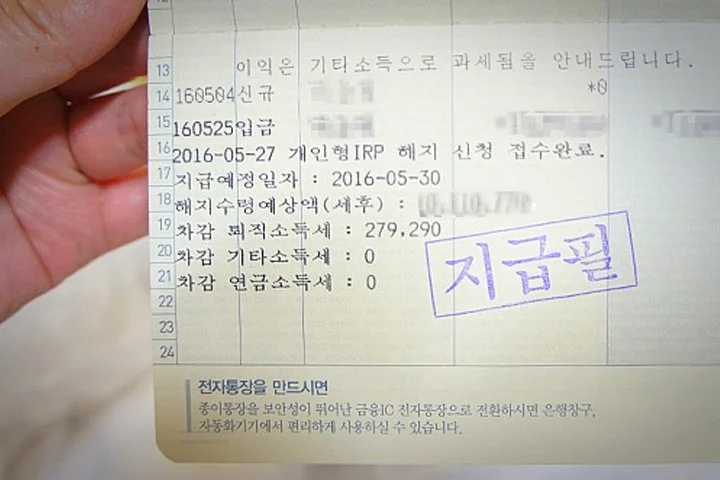 12
13 이익은 기타소득으로 과세됨을 안내드립니다.
14 160504신규 *0
15 160525입금
16 2016-05-27 개인형IRP 해지 신청 접수완료.
17 지급예정일자 : 2016-05-30
18 해지수령예상액(세후) :
19 차감 퇴직소득세 : 279,290
20 차감 기타소득세 : 0
21 차감 연금소득세 : 0
22
23
24
지급필
전자통장을 만드시면
종이통장을 보안성이 뛰어난 금융IC 전자통장으로 전환하시면 은행창구,
자동화기기에서 편리하게 사용하실 수 있습니다.